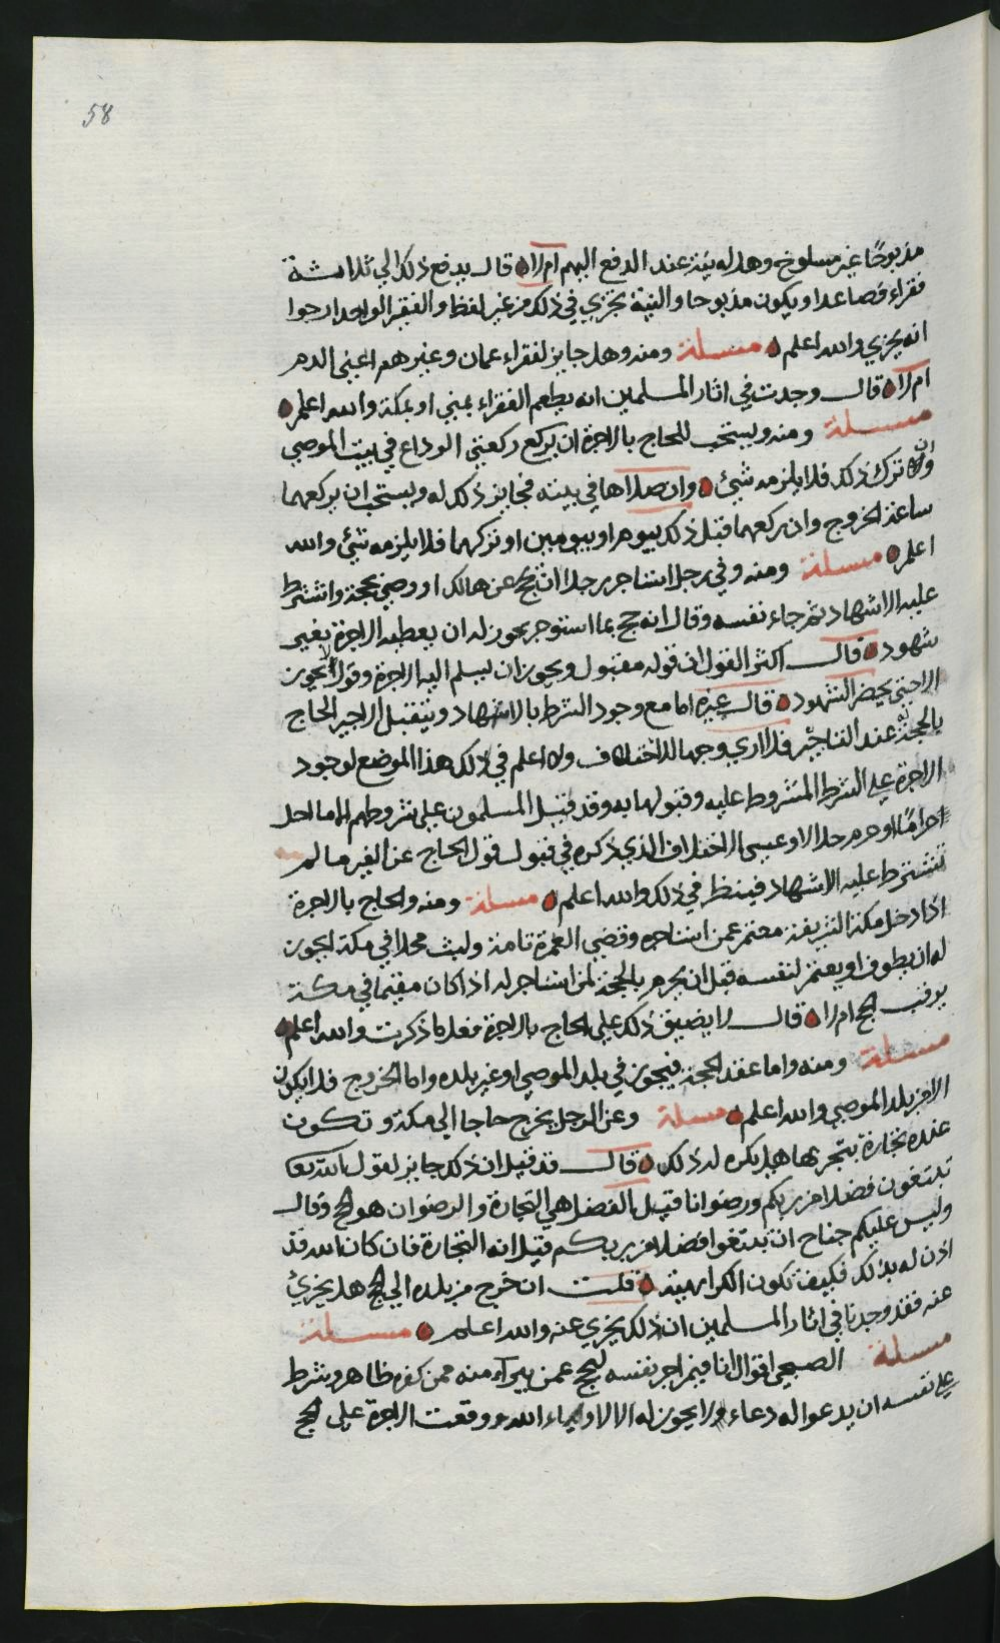 58
مذبوحًا غير مسلوخ وهل له نية عند الدفع اليهم ام لا قال يدفع ذلك الي ثلاثة
فقراء فصاعدا ويكون مذبوحا والنية تجزي في ذلك من غير لفظ والفقير الواحد ارجوا
انه يجزي والله اعلم مسئلة ومنه وهل جايز لفقراء عمان وغيرهم اعني الدم
ام لا قال وجدت في اثار المسلمين انه يطعم الفقراء بمني او بمكة والله اعلم
مسئلة ومنه ويستحب للحاج بالاجرة ان يركع ركعتي الوداع في بيت الموصي
وان ترك ذلك فلا يلزمه شئ وان صلاها في بيته فجايز ذلك له ويستحب ان يركعهما
ساعة الخروج وان ركعهما قبل ذلك بيوم او بيومين او تركهما فلا يلزمه شئ والله
اعلم مسئلة ومنه وفي رجل استاجر رجلا ان يحج عن هالك اوصي بحجة واشترط
عليه الاشهاد ثم جاء نفسه وقال انه حج بما استوجر يجوز له ان يعطيه الاجرة بغير
شهود قال اكثر القول ان قوله مقبول ويجوز ان يسلم اليه الاجرة وقول لا يجوز
الا حتي يحضر الشهود قال غيره اما مع وجود الشرط بالاشهاد ويتقبل الاجير الحاج
بالحجة عند التاجير فلا اري وجها للاختلاف ولا اعلم في ذلك هذا الموضع لوجود
الاجرة علي الشرط المشروط عليه وقبولها به وقد قيل المسلمون علي شروطهم الا ما احل
حرامًا او حرم حلالا وعسي الاختلاف الذي ذكره في قبول قول الحاج عن الغير ما لم
تشترط عليه الاشهاد فينظر في ذلك والله اعلم مسئلة ومنه والحاج بالاجرة
اذا دخل مكة الشريفة معتمر عمن استاجره وقضي العمرة تامة ولبث محلا في مكة ايجوز
له ان يطوف او يعتمر لنفسه قبل ان يحرم بالحجة لمن استاجر له اذا كان مقيما في مكة
يوقب الحج ام لا قال لا يضيق ذلك علي الحاج بالاجرة فعل ما ذكرت والله اعلم
مسئلة ومنه واما عقد الحجة فيجوز في بلد الموصي او غير بلده واما الخروج فلا يكون
الا من بلد الموصي والله اعلم مسئلة وعن الرجل يخرج حاجا الي مكة وتكون
عنده تجارة يتجر بها هل يكره له ذلك قال قد قيل ان ذلك جايز لقول الله تعا
تبتغون فضلا من ربكم ورضوانا قيل الفضل هي التجارة والرضوان هو الحج وقال
وليس عليكم جناح ان تبتغوا فضلا من ربكم قيل انه التجارة فان كان الله قد
اذن له بذلك فكيف تكون الكراهية قلت ان خرج من بلده الي الحج هل يجزئ
عنه فقد وجدنا في اثار المسلمين ان ذلك يجزي عنه والله اعلم مسئلة
مسئلة الصبحي اقول انا فيمن اجر نفسه ليحج عمن يبراء منه ممن كفره ظاهر وشرط
علي نفسه ان يدعوا له دعاء ولا يجوز له الا لاولياء الله ووقعت الاجرة علي الحج